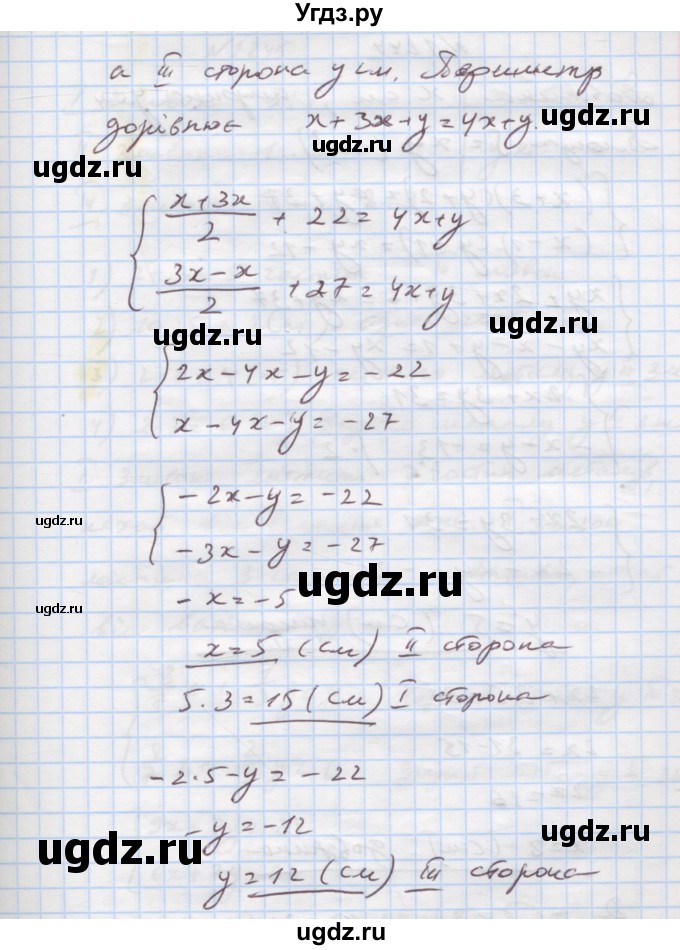 Угдз.ру
а III сторона y см. Периметр
дорівнює x + 3x + y = 4x + y.
ugdz.ru
ugdz.ru
(x + 3x)/2 + 22 = 4x + y
ugdz.ru
(3x - x)/2 + 27 = 4x + y
ugdz.ru
ugdz.ru
2x - 4x - y = -22
x - 4x - y = -27
ugdz.ru
-2x - y = -22
ugdz.ru
-3x - y = -27
ugdz.ru
-x = -5
ugdz.ru
x = 5 (см) II сторона
ugdz.ru
5 · 3 = 15 (см) I сторона
-2 · 5 - y = -22
ugdz.ru
-y = -12
ugdz.ru
ugdz.ru
y = 12 (см) III сторона
ugdz.ru
ugdz.ru